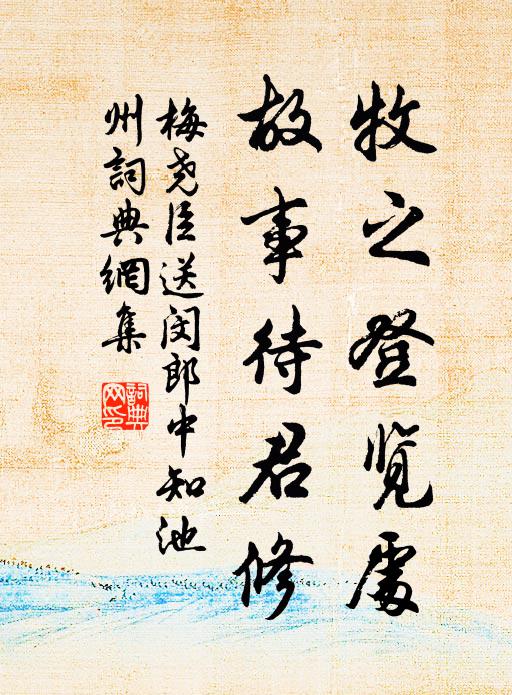 牧之登览處
故事待君修
梅尧臣送闵郎中知池
州詞典網集
詞典
网印